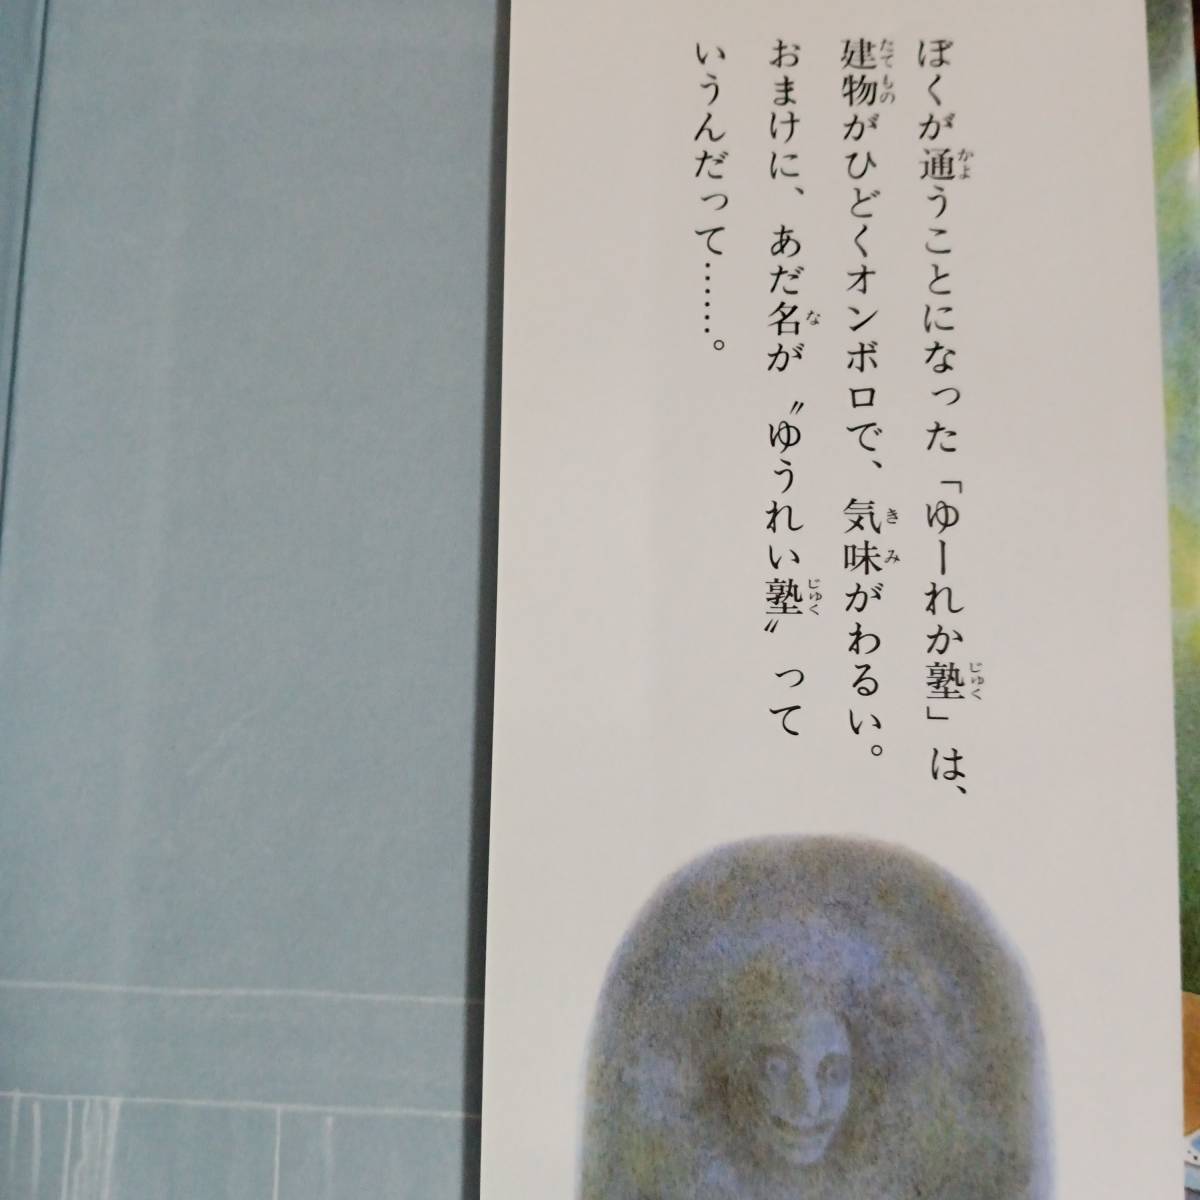 ぼくが通うことになった「ゆーれか塾」は、
建物がひどくオンボロで、気味がわるい。
おまけに、あだ名が〝ゆうれい塾〟って
いうんだって……。